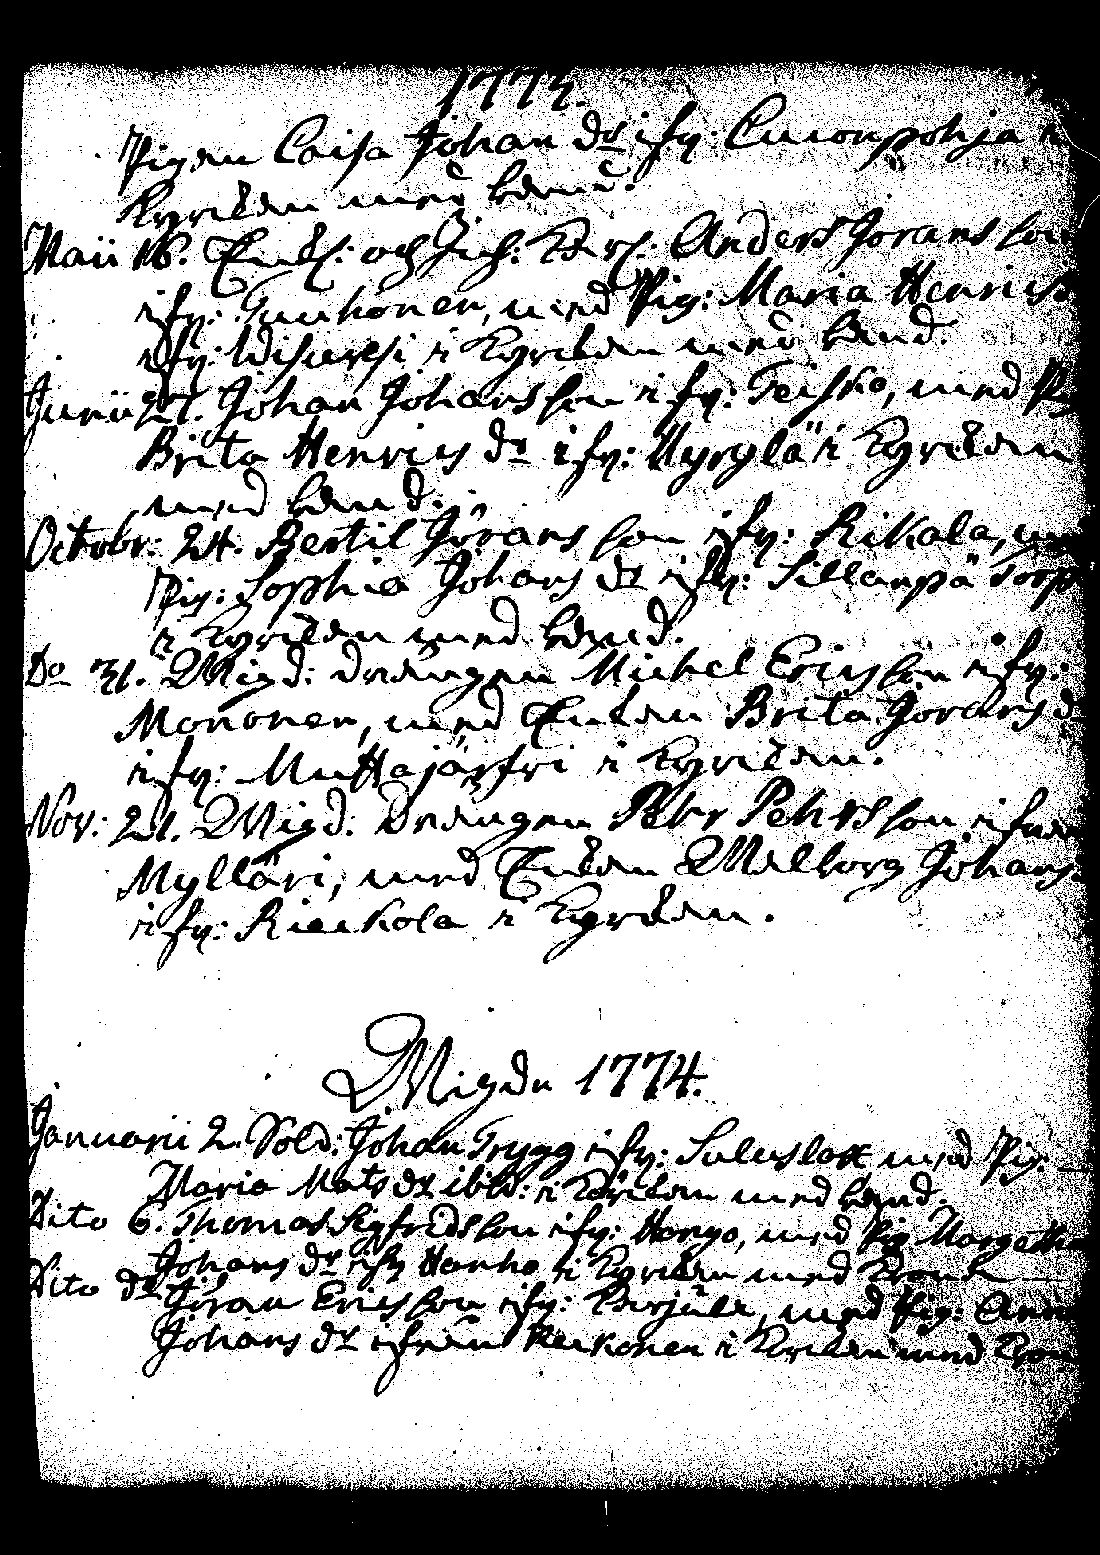 1774.
Pigan Caisa Johans dr ifr: Cuconpohja i
Kyrckan med band.
Maii 16. Enkl: och Kyrs: Anders Jörans son
ifr: Tuuhonen, med Pig: Maria Henrics
ifr: i Kyrckan med band.
Junii 27. Johan Johansson ifr: Teisko, med P
Brita Henrics dr ifr: Hyrylä i Kyrckan
med band.
Octobr: 24. Bertil Jörans son ifr: Rikala, m
Pig: Sophia Johans dr ifr: Sillanpä Torp
i Kyrckan med band.
Do 31. Wigd: drängen Michel Ericsson ifr:
Mononen, med Enkan Brita Jörans d
ifr: Muttajärfvi i Kyrckan.
Nov: 21. Wigd: Drängen Petr Pehrsson ifrån
Mylläri, med Enkan Walborg Johans
ifr: Rieckola i Kyrckan.
Wigde 1774.
Januarii 2. Sold: Johan Trygg ifr: med Pig:
Maria Mats dr ibid: i Kyrckan med band.
Dito 6. Thomas Sigfridsson ifr: Hongo, med Pig Margetha
Johans dr ifr Hanho i Kyrckan med Krona
Dito do Jöran Ericsson ifr: med Pig: Anna
Johans dr ifrån Keikonen i Kyrckan med Kron